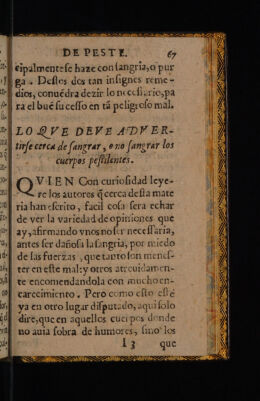 DE PESTE. 67
cipalmente se haze con sangria, o pur
ga. Destos dos tan insignes reme-
dios, conuẽdra dezir lo necessario, pa
ra el buẽ sucesso en tã peligroso mal.
LO QVE DEVE ADVER-
tirse cerca de sangrar, o no sangrar los
cuerpos pestilentes.
QVIEN Con curiosidad leye-
re los autores q̃ cerca desta mate
ria han escrito, facil cosa sera echar
de ver la variedad de opiniones que
ay, afirmando vnos no ser necessaria,
antes ser dañosa la sangria, por miedo
de las fuerzas, que tanto son menes-
ter en este mal: y otros atreuidamen-
te encomendandola con mucho en-
carecimiento. Pero como esto estè
ya en otro lugar disputado, aqui solo
dire, que en aquellos cuerpos donde
no auia sobra de humores, sino los
I 3 que